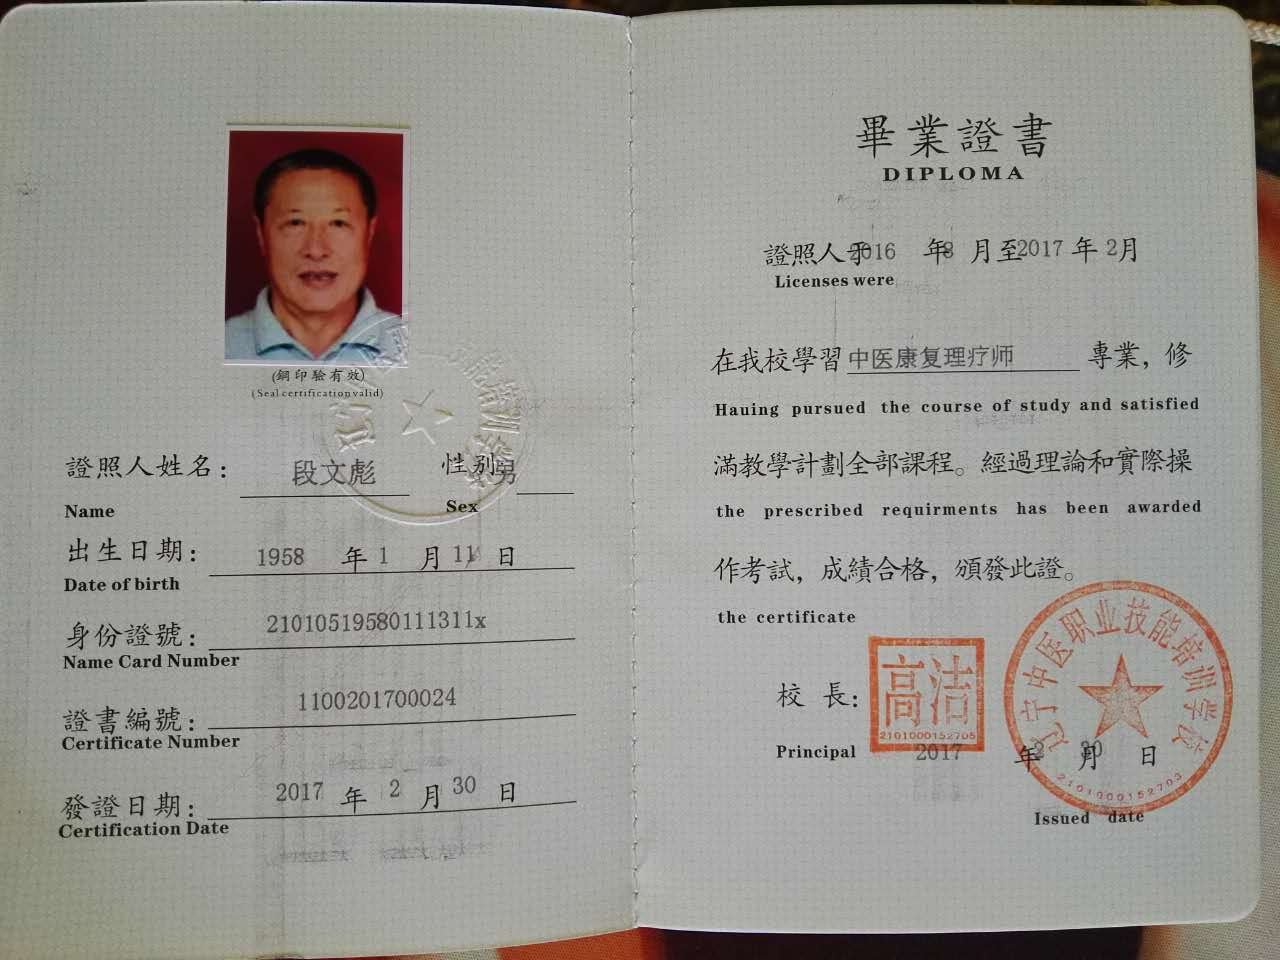 (鋼印验有效)
(Seal certification valid)
證照人姓名: 段文彪 性别 男
Name Sex
出生日期: 1958 年 1 月 11 日
Date of birth
身份證號: 21010519580111311x
Name Card Number
證書編號: 1100201700024
Certificate Number
發證日期: 2017 年 2 月 30 日
Certification Date
畢業證書
DIPLOMA
證照人于2016 年8 月至2017 年 2月
Licenses were
在我校學習 中医康复理疗师 專業，修
Hauing pursued the course of study and satisfied
滿教學計劃全部課程。經過理論和實際操
the prescribed requirments has been awarded
作考試，成績合格，頒發此證。
the certificate
校 長: 高洁
2101000152705
Principal 2017 年 2 月 30 日
Issued date
辽宁中医职业技能培训学校
2101000152703